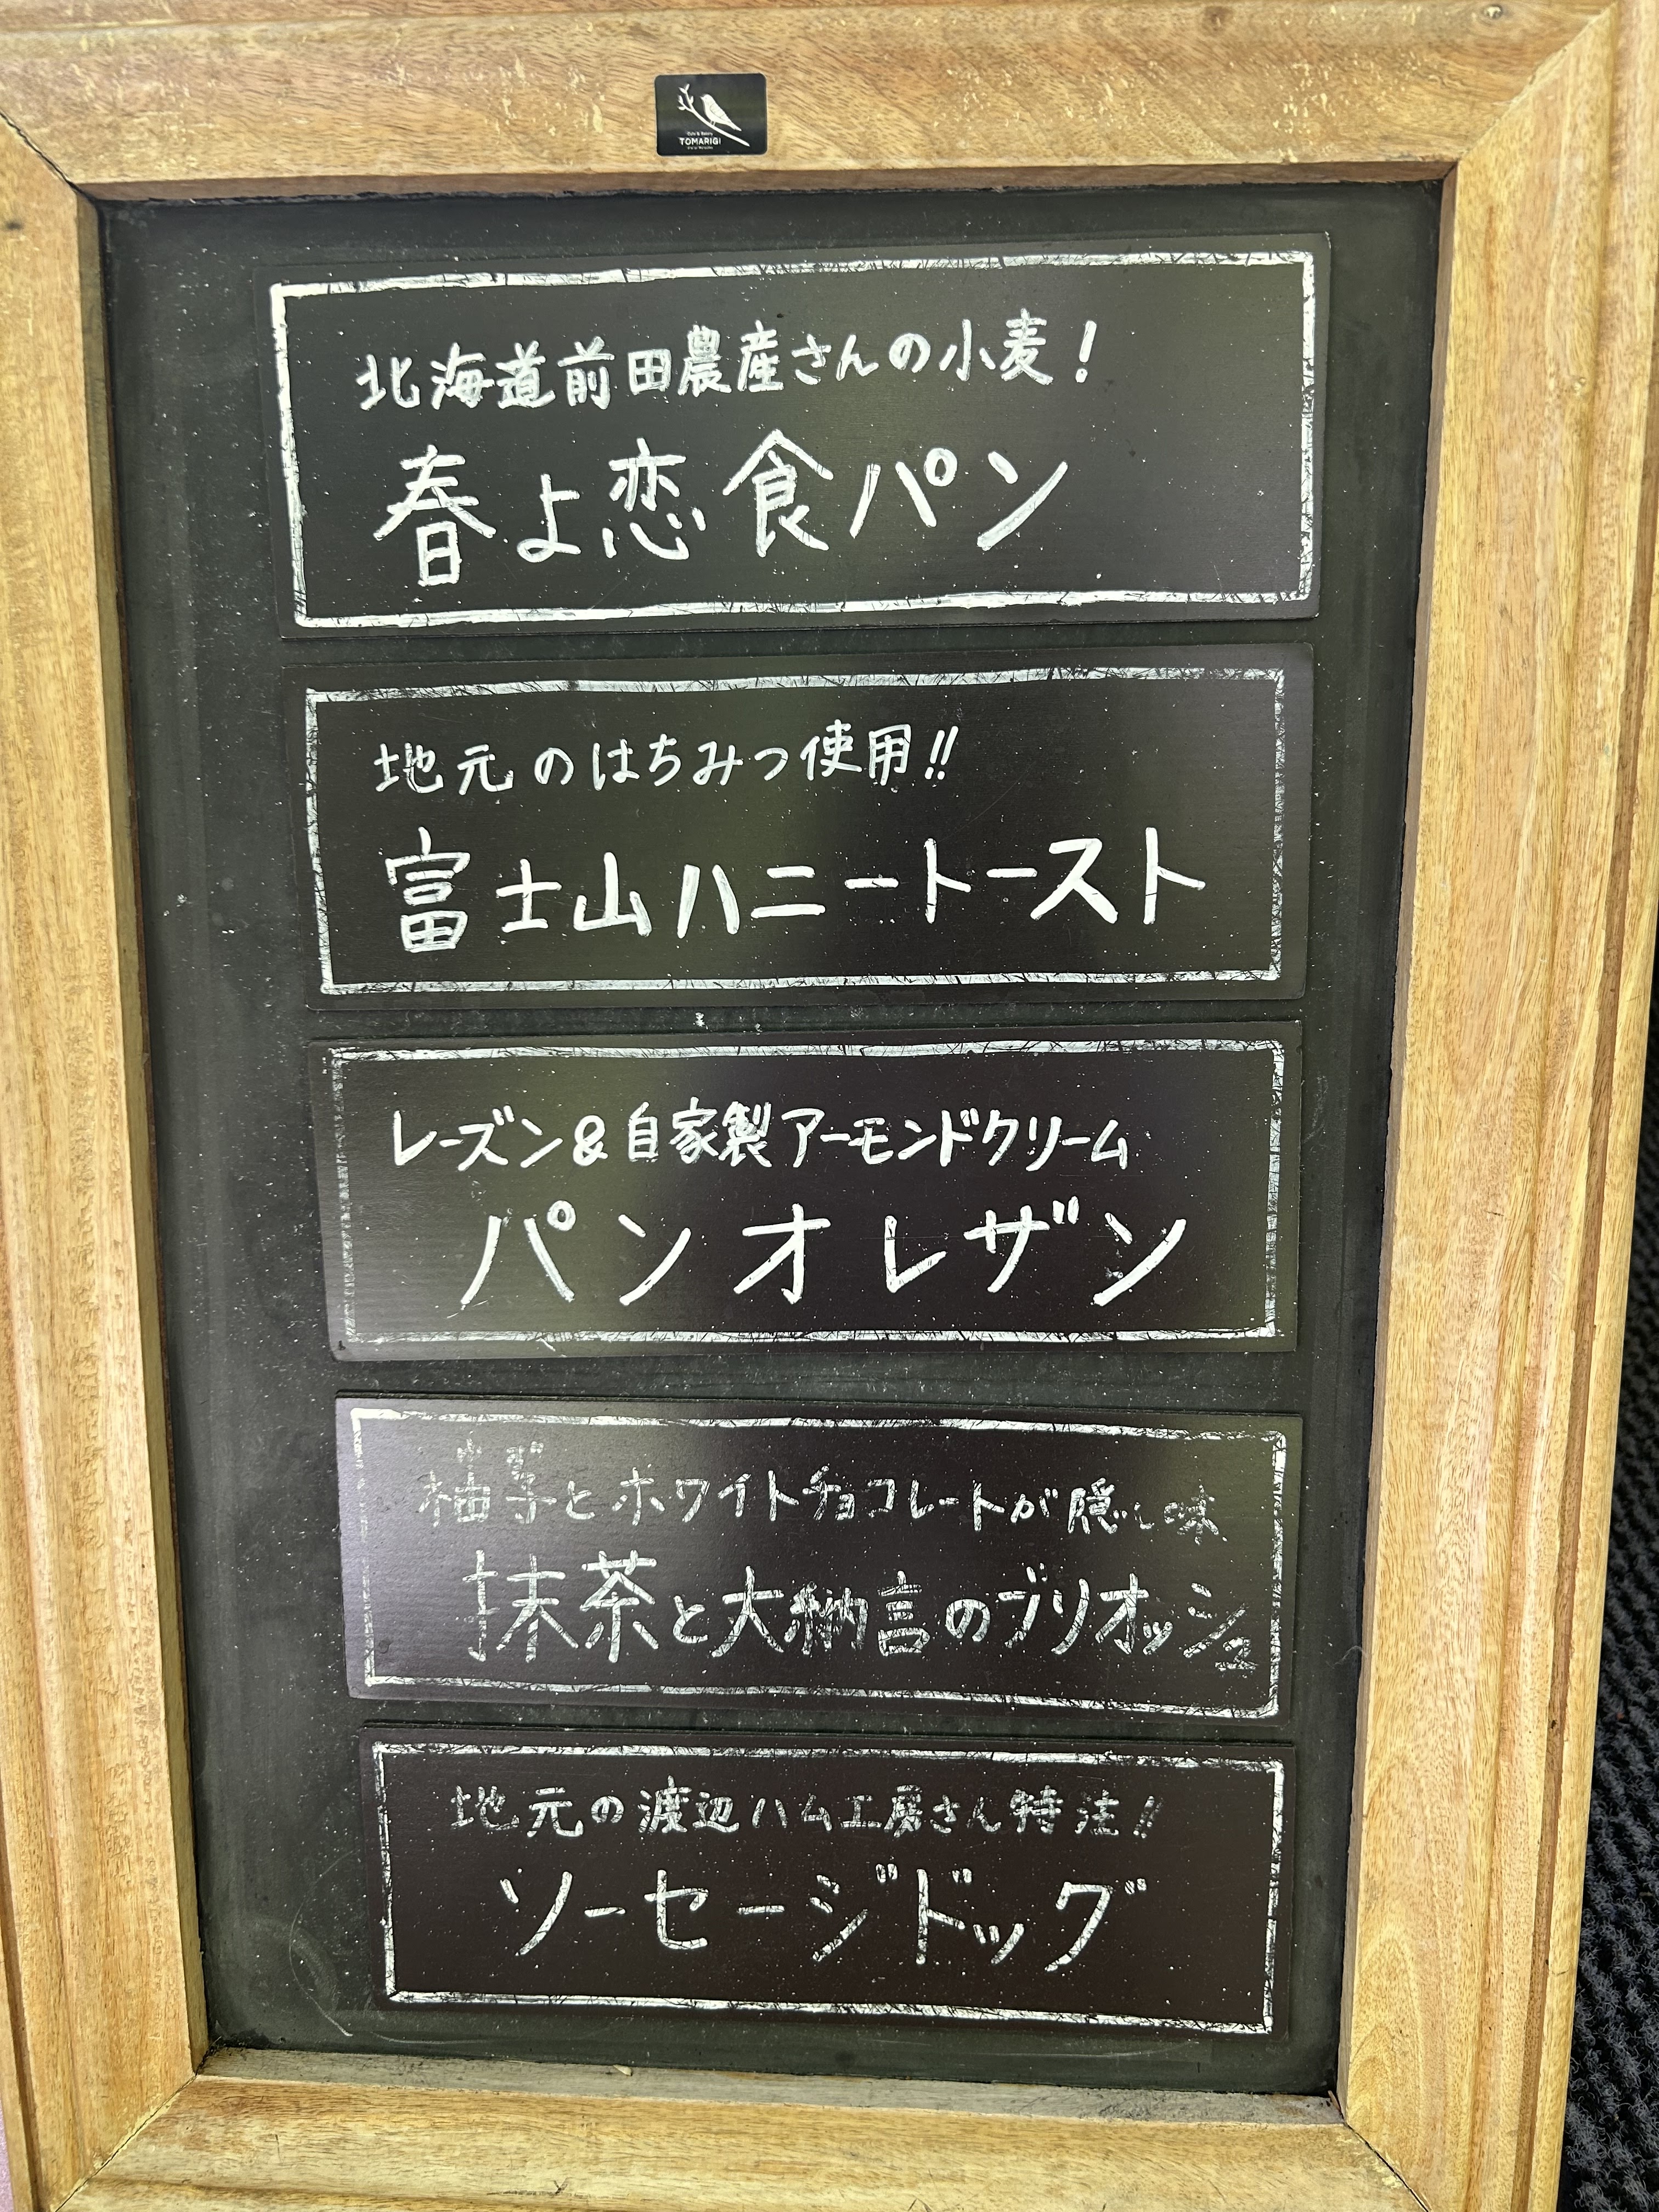 TOMARIGI
北海道前田農産さんの小麦!
春よ恋食パン
地元のはちみつ使用!!
富士山ハニートースト
レーズン&自家製アーモンドクリーム
パンオレザン
ゆず
柚子とホワイトチョコレートが隠し味
抹茶と大納言のブリオッシュ
地元の渡辺ハム工房さん特注!!
ソーセージドッグ